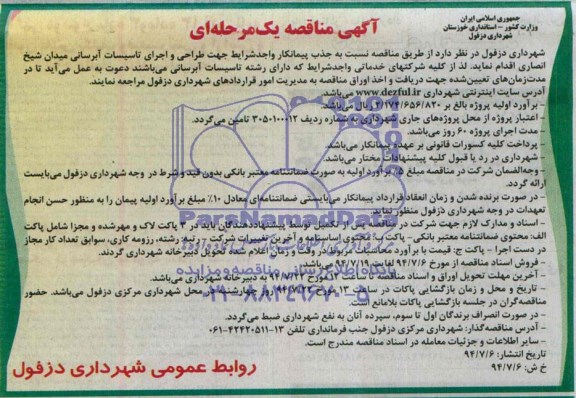 جمهوری اسلامی ایران
وزارت کشور - استانداری خوزستان
شهرداری دزفول
آگهی مناقصه یک‌مرحله‌ای
شهرداری دزفول در نظر دارد از طریق مناقصه نسبت به جذب پیمانکار واجدشرایط جهت طراحی و اجرای تاسیسات آبرسانی میدان شیخ
انصاری اقدام نماید. لذا از کلیه شرکتهای خدماتی واجدشرایط که دارای رشته تاسیسات آبرسانی می‌باشند دعوت به عمل می‌آید تا در
مدت‌زمان‌های تعیین‌شده جهت دریافت و اخذ اوراق مناقصه به مدیریت امور قراردادهای شهرداری دزفول مراجعه نمایند.
آدرس سایت اینترنتی شهرداری www.dezful.ir می‌باشد.
- برآورد اولیه پروژه بالغ بر ۲/۱۷۲/۶۵۶/۸۲۰ ریال می‌باشد.
- اعتبار پروژه از محل پروژه‌های جاری شهرداری به شماره ردیف ۳۰۵۰۱۰۰۰۱۲ تامین می‌گردد.
- مدت اجرای پروژه ۶۰ روز می‌باشد.
- پرداخت کلیه کسورات قانونی بر عهده پیمانکار می‌باشد.
- شهرداری در رد یا قبول کلیه پیشنهادات مختار می‌باشد.
- وجه‌الضمان شرکت در مناقصه مبلغ ۵٪ برآورد اولیه به صورت ضمانتنامه معتبر بانکی بدون قید و شرط در وجه شهرداری دزفول می‌بایست
ارائه گردد.
- در صورت برنده شدن و زمان انعقاد قرارداد پیمانکار می‌بایستی ضمانتنامه‌ای معادل ۱۰٪ مبلغ برآورد اولیه پیمان را به منظور حسن انجام
تعهدات در وجه شهرداری دزفول منظور نماید.
- اسناد و مدارک لازم جهت شرکت در مناقصه پس از تکمیل توسط پیشنهاددهندگان باید در ۳ پاکت لاک و مهرشده و مجزا شامل پاکت
الف: محتوی ضمانتنامه معتبر بانکی- پاکت ب: محتوی اساسنامه و آخرین تغییرات شرکت، رتبه، رشته، رزومه کاری، سوابق تعداد کار مجاز
در دست اجرا - پاکت ج: قیمت با برآورد مناقصه مربوط در وقت و زمان اعلام شده تحویل دبیرخانه شهرداری گردند.
- فروش اسناد مناقصه از مورخ ۹۴/۷/۶ لغایت ۹۴/۷/۱۹ می‌باشد.
- آخرین مهلت تحویل اوراق و اسناد مناقصه تا ساعت مورخ ۹۴/۷/۲۲ به دبیرخانه شهرداری می‌باشد.
- تاریخ و محل و زمان بازگشایی پاکات در ساعت ۱۳ مورخ ۹۴/۷/۲۲ روز چهارشنبه در محل شهرداری مرکزی دزفول می‌باشد. حضور
مناقصه‌گران در جلسه بازگشایی پاکات بلامانع است.
- در صورت انصراف برندگان اول تا سوم، سپرده آنان به نفع شهرداری ضبط می‌گردد.
- آدرس مناقصه‌گذار: شهرداری مرکزی دزفول جنب فرمانداری تلفن ۱۳-۴۲۴۲۰۵۱۱-۰۶۱
- سایر اطلاعات و جزئیات معامله در اسناد مناقصه مندرج است.
تاریخ انتشار: ۹۴/۷/۶
خ ش: ۹۴/۷/۶
روابط عمومی شهرداری دزفول
ParsNamadData
پایگاه اطلاع رسانی مناقصه و مزایده
۰۲۱-۸۸۳۴۹۶۷۰-۵